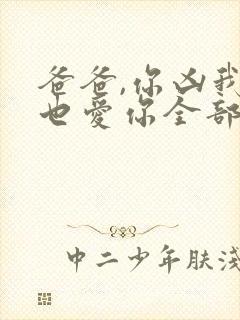 爸爸,你凶我
也愛你全部
中二少年肤淺